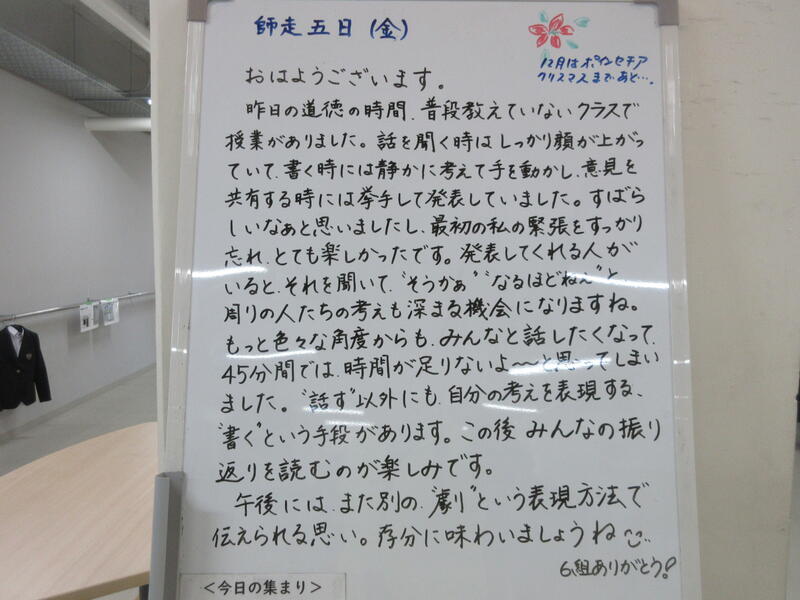 師走五日(金)
12月はポインセチア
クリスマスまであと…。
おはようございます。
昨日の道徳の時間、普段教えていないクラスで
授業がありました。話を聞く時はしっかり顔が上がっ
ていて、書く時には静かに考えて手を動かし、意見を
共有する時には挙手して発表していました。すばら
しいなぁと思いましたし、最初の私の緊張をすっかり
忘れ、とても楽しかったです。発表してくれる人が
いると、それを聞いて、“そうかぁ”“なるほどねぇ”と、
周りの人たちの考えも深まる機会になりますね。
もっと色々な角度からも、みんなと話したくなって、
45分間では、時間が足りないよ〜〜と思ってしまい
ました。“話す”以外にも、自分の考えを表現する、
“書く”という手段があります。この後 みんなの振り
返りを読むのが楽しみです。
午後には、また別の、“劇”という表現方法で
伝えられる思い。存分に味わいましょうね
6組ありがとう!
<今日の集まり>